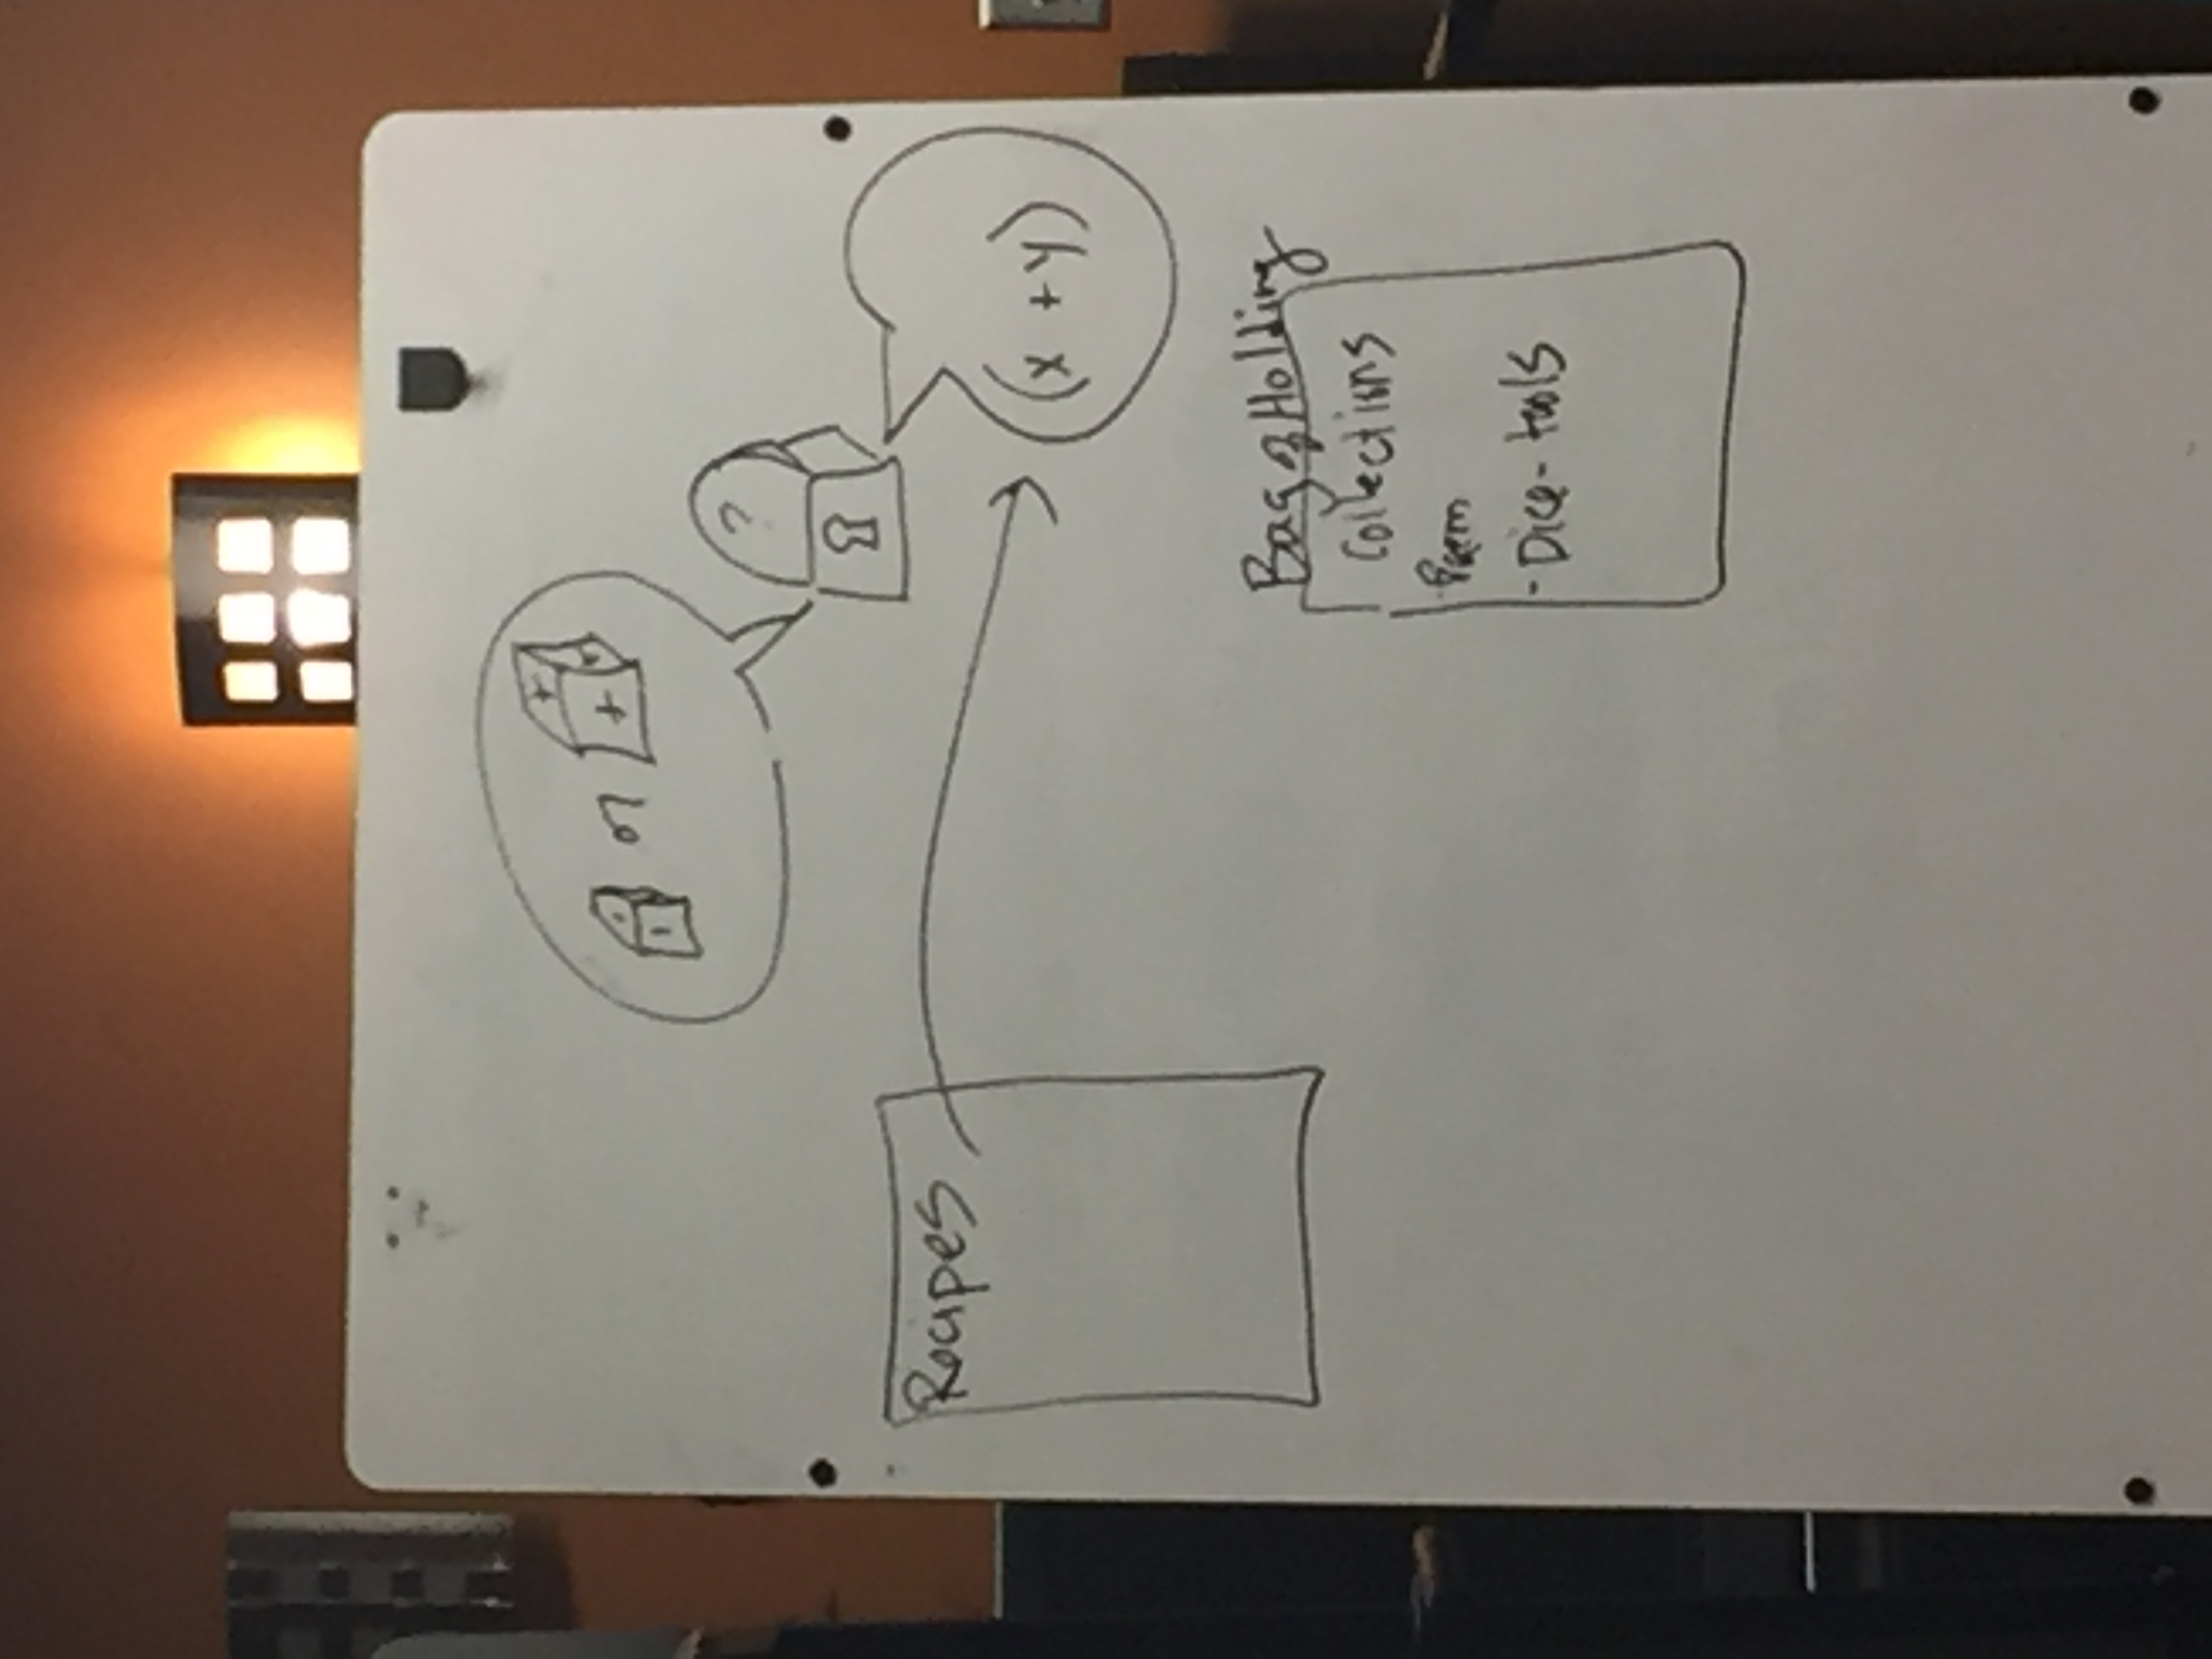 or
?
Recipes
(x + y)
Bag of Holding
Collections
- Dice-tools